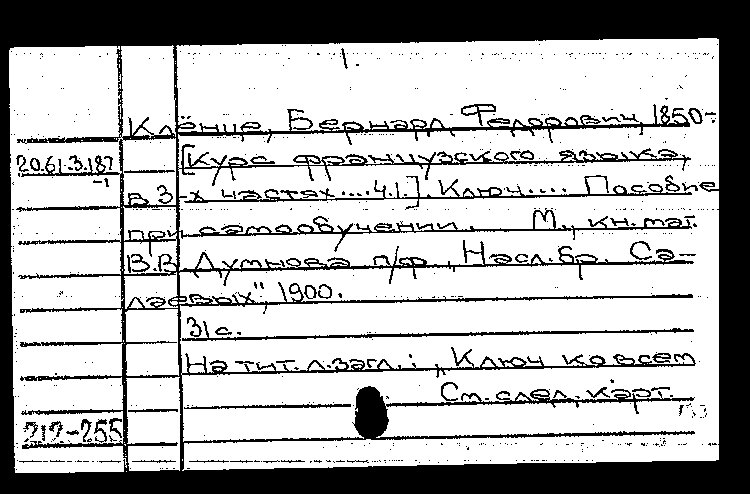 1.
Клёнце, Бернард Федорович, 1850-
20.61.3.187
-1
[Курс французского языка,
в 3-х частях....ч.1.]. Ключ.... Пособие
при самообучении. М., кн. маг.
В.В. Думнова п/ф „Насл. бр. Са-
лаевых", 1900.
31 с.
На тит. л. загл.: „Ключ ко всем
См. след. карт.
212-255